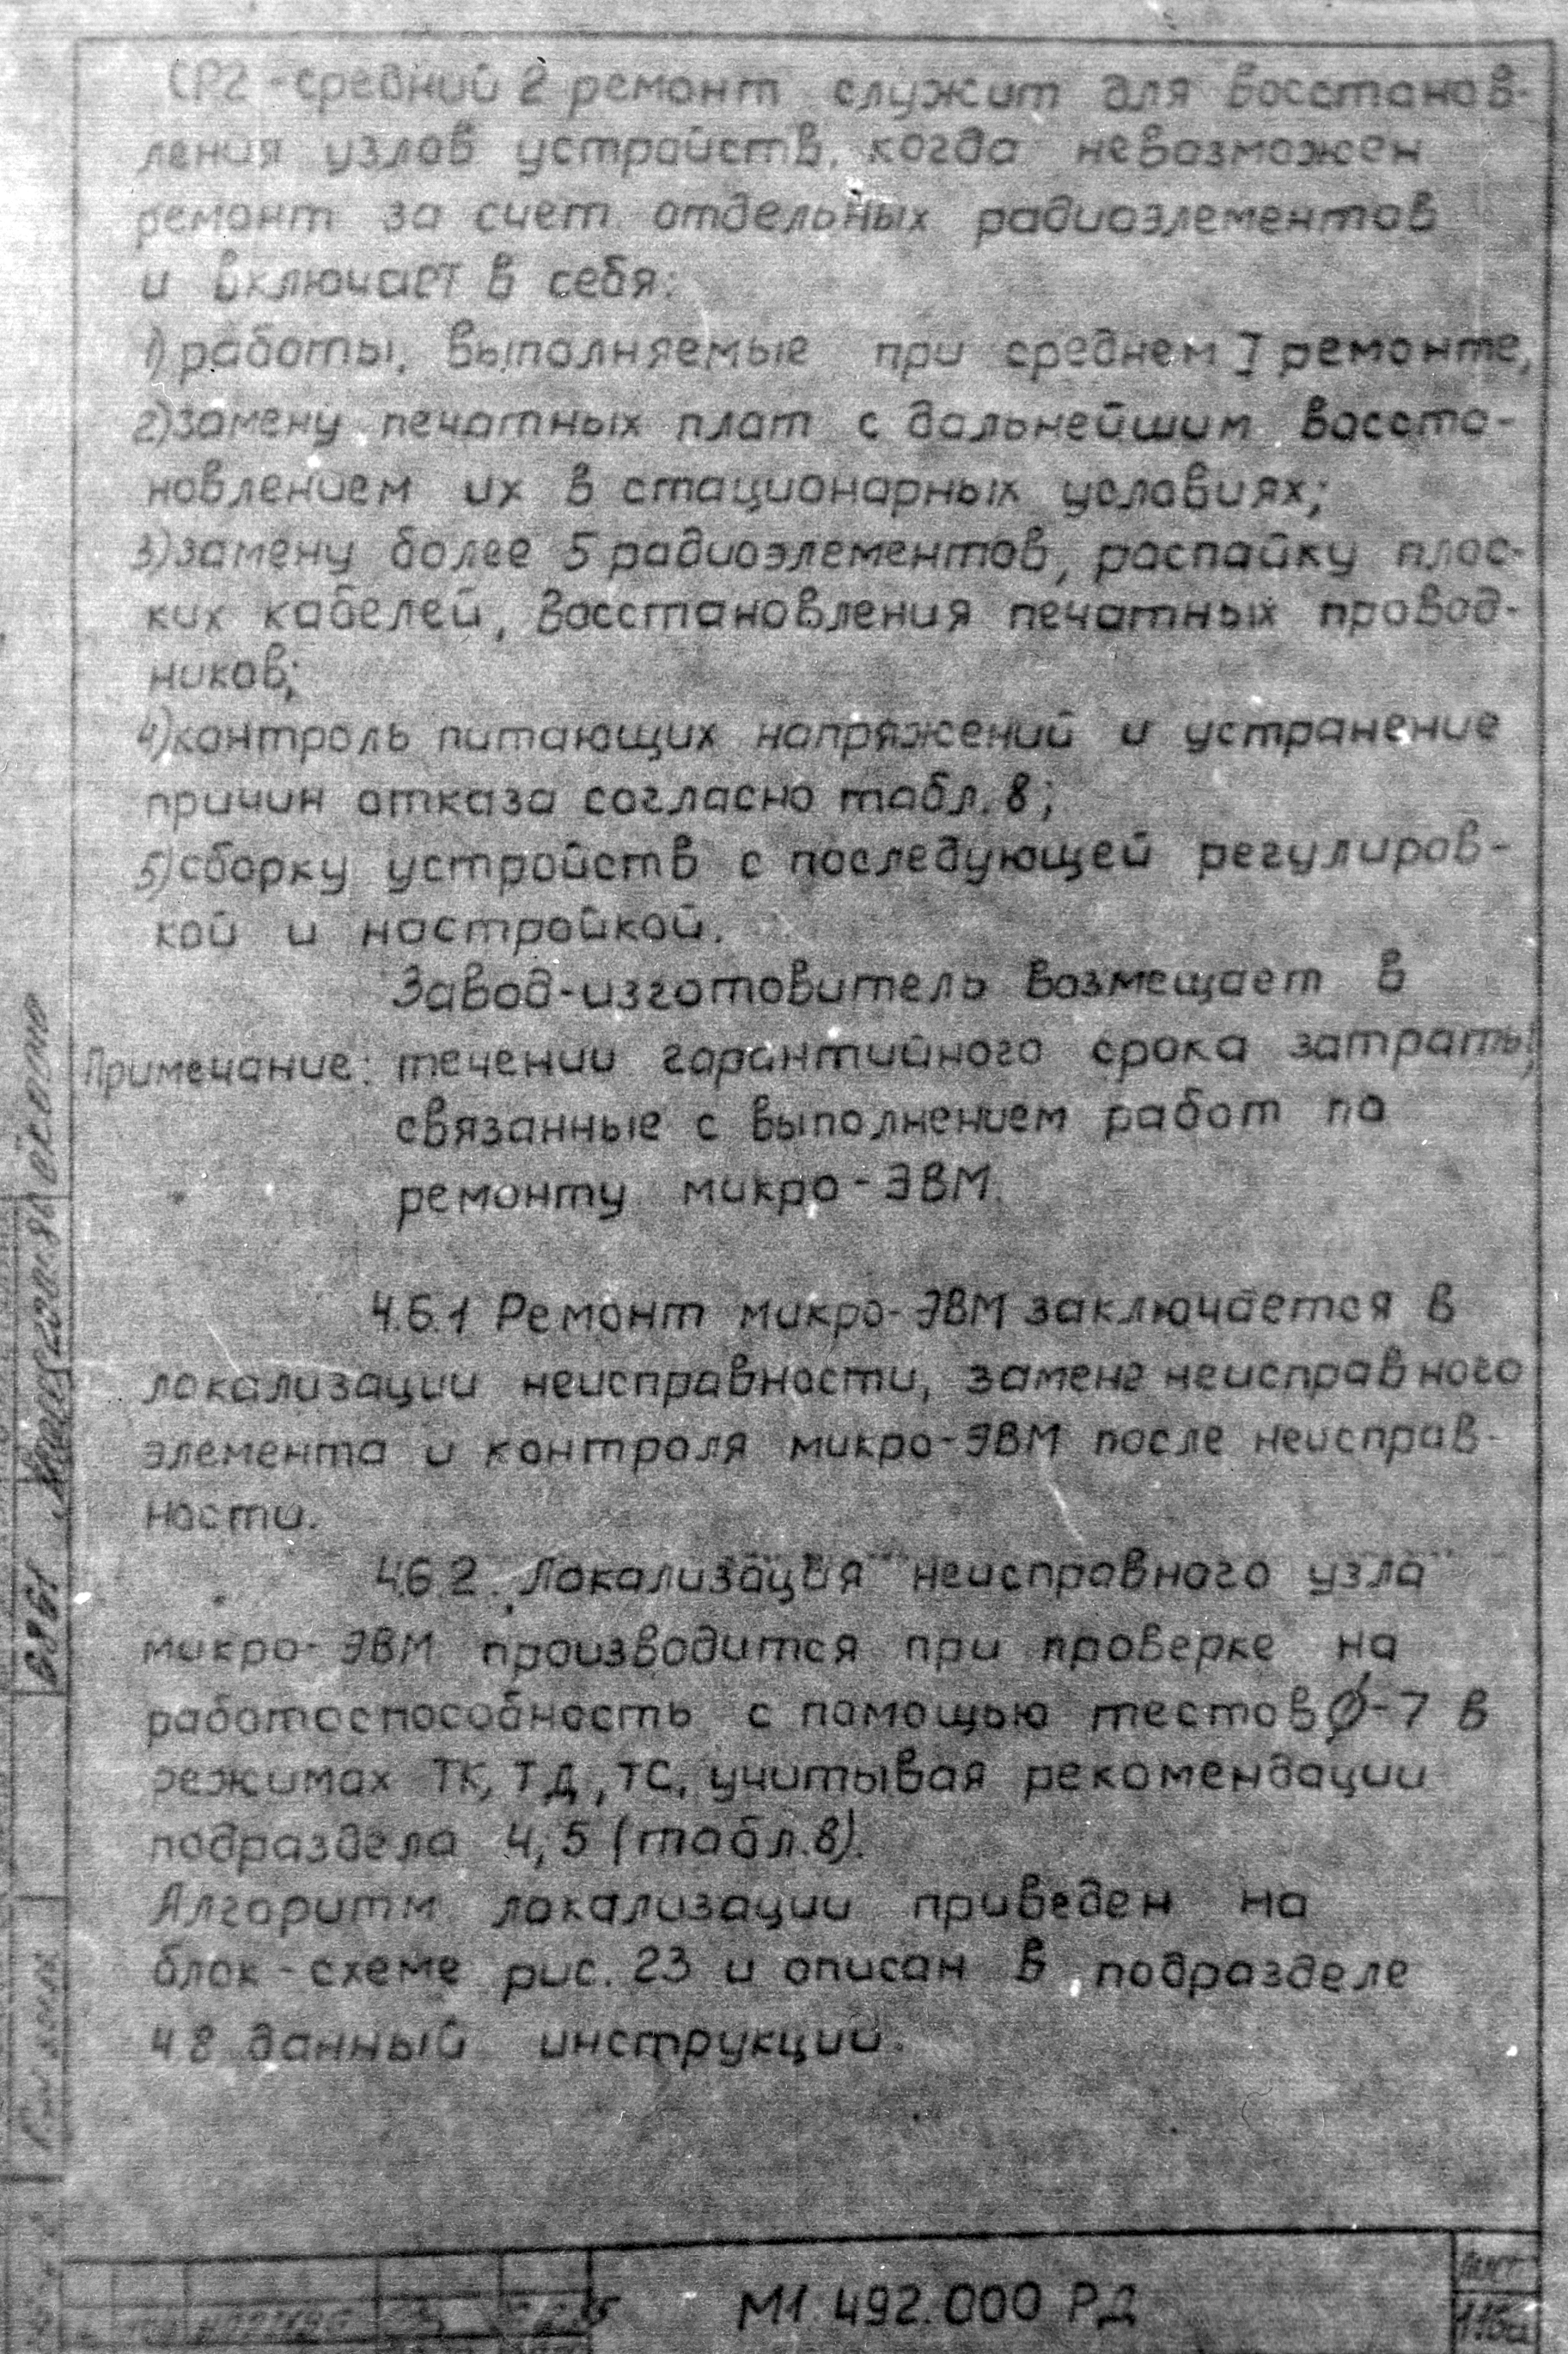 СР2 - средний 2 ремонт служит для восстанов-
ления узлов устройств, когда невозможен
ремонт за счет отдельных радиоэлементов
и включает в себя:
1) работы, выполняемые при среднем I ремонте,
2) замену печатных плат с дальнейшим восста-
новлением их в стационарных условиях;
3) замену более 5 радиоэлементов, распайку плос-
ких кабелей, восстановления печатных провод-
ников;
4) контроль питающих напряжений и устранение
причин отказа согласно табл. 8;
5) сборку устройств с последующей регулиров-
кой и настройкой.
Завод-изготовитель возмещает в
Примечание: течении гарантийного срока затраты,
связанные с выполнением работ по
ремонту микро-ЭВМ.
4.6.1 Ремонт микро-ЭВМ заключается в
локализации неисправности, замене неисправного
элемента и контроля микро-ЭВМ после неисправ-
ности.
4.6.2. Локализация неисправного узла
микро-ЭВМ производится при проверке на
работоспособность с помощью тестов Ø-7 в
режимах ТК, ТД, ТС, учитывая рекомендации
подраздела 4,5 (табл.8).
Алгоритм локализации приведен на
блок-схеме рис. 23 и описан в подразделе
4.8 данный инструкции.
М1.492.000 РД
Лист
115а